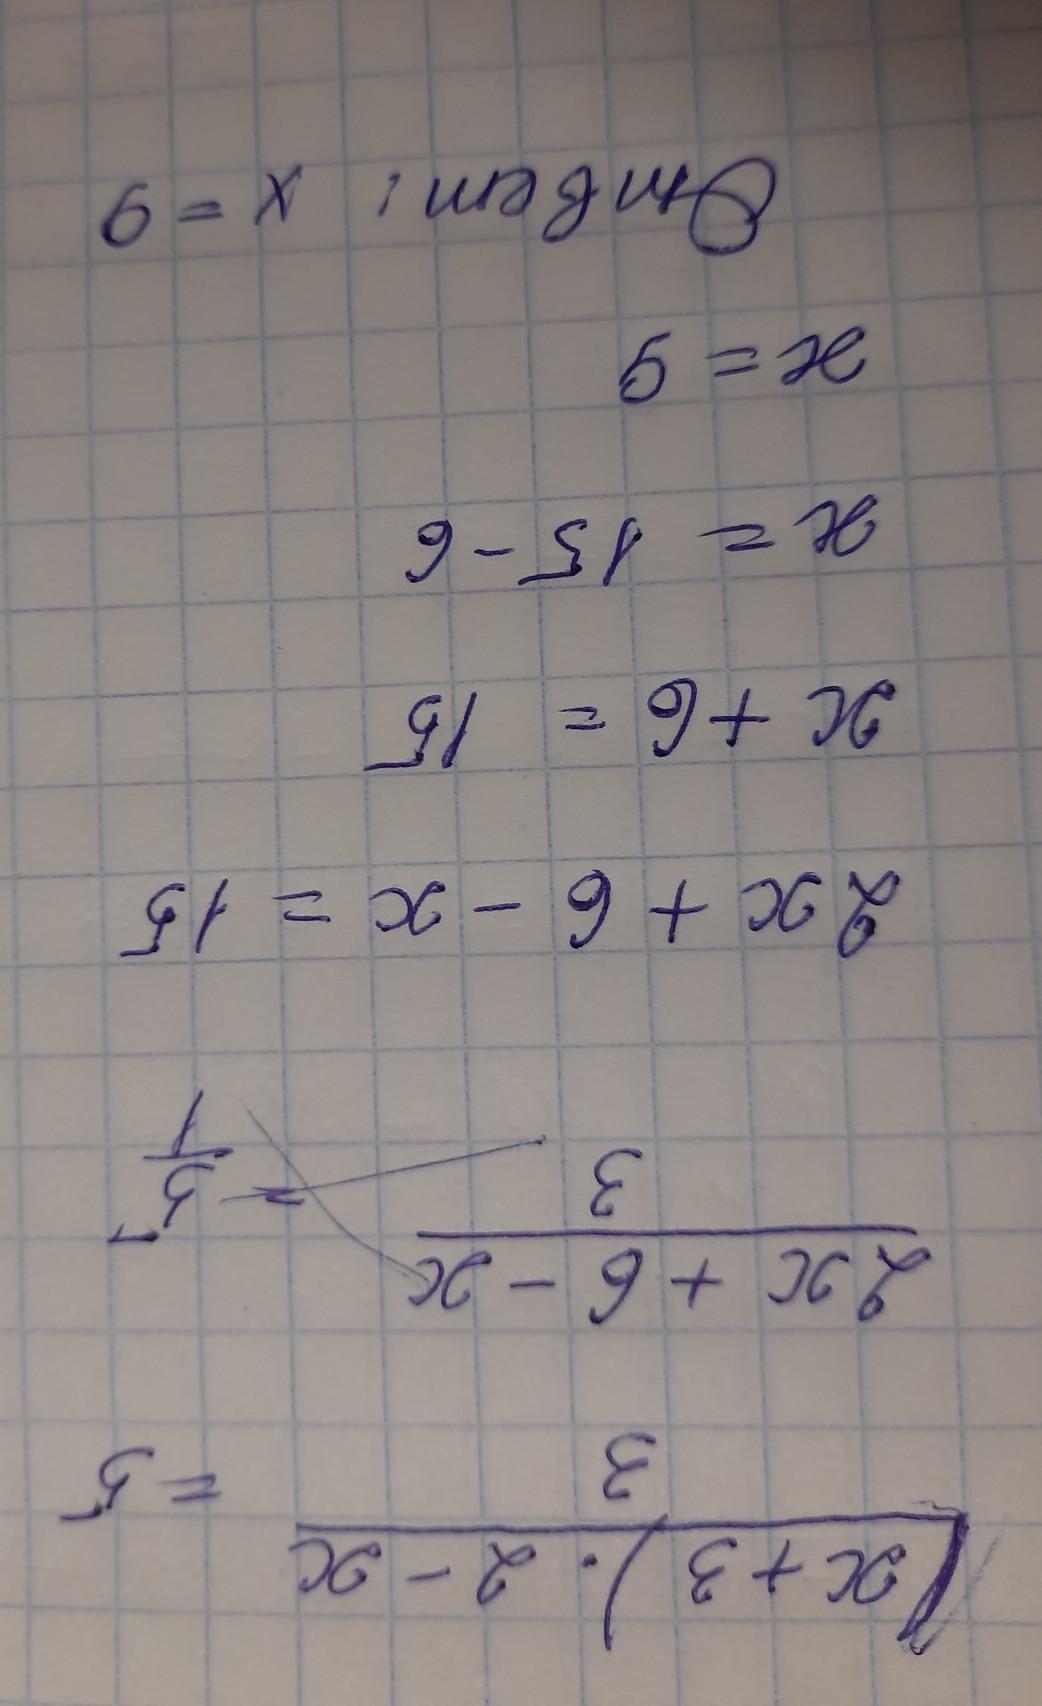 (x+3)·2-x
3
=5
2x+6-x
3
=
5
1
2x+6-x=15
x+6=15
x=15-6
x=9
Ответ: x=9